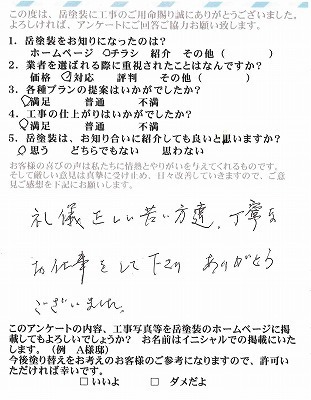 この度は、岳塗装に工事のご用命賜り誠にありがとうございました。
よろしければ、アンケートにご回答ご協力お願い致します。
1. 岳塗装をお知りになったのは?
ホームページ ○チラシ 紹介 その他 ( )
2. 業者を選ばれる際に重視されたことはなんですか?
価格 ○対応 評判 その他 ( )
3. 各種プランの提案はいかがでしたか?
○満足 普通 不満
4. 工事の仕上がりはいかがでしたか?
○満足 普通 不満
5. 岳塗装は、お知り合いに紹介しても良いと思いますか?
○思う どちらでもない 思わない
お客様の喜びの声は私たちに情熱とやりがいを与えてくれるものです。
そして厳しい意見は真摯に受け止め、日々改善していきますので、ご意
見ご感想を下記にお願いします。
礼儀正しい若い方達、丁寧な
お仕事をして下さり ありがとう
ございました。
このアンケートの内容、工事写真等を岳塗装のホームページに掲
載してもよろしいでしょうか? お名前はイニシャルでの掲載にいた
します。(例 A様邸)
今後塗り替えをお考えのお客様のご参考になりますので、許可い
ただければ幸いです。
□ いいよ □ ダメだよ